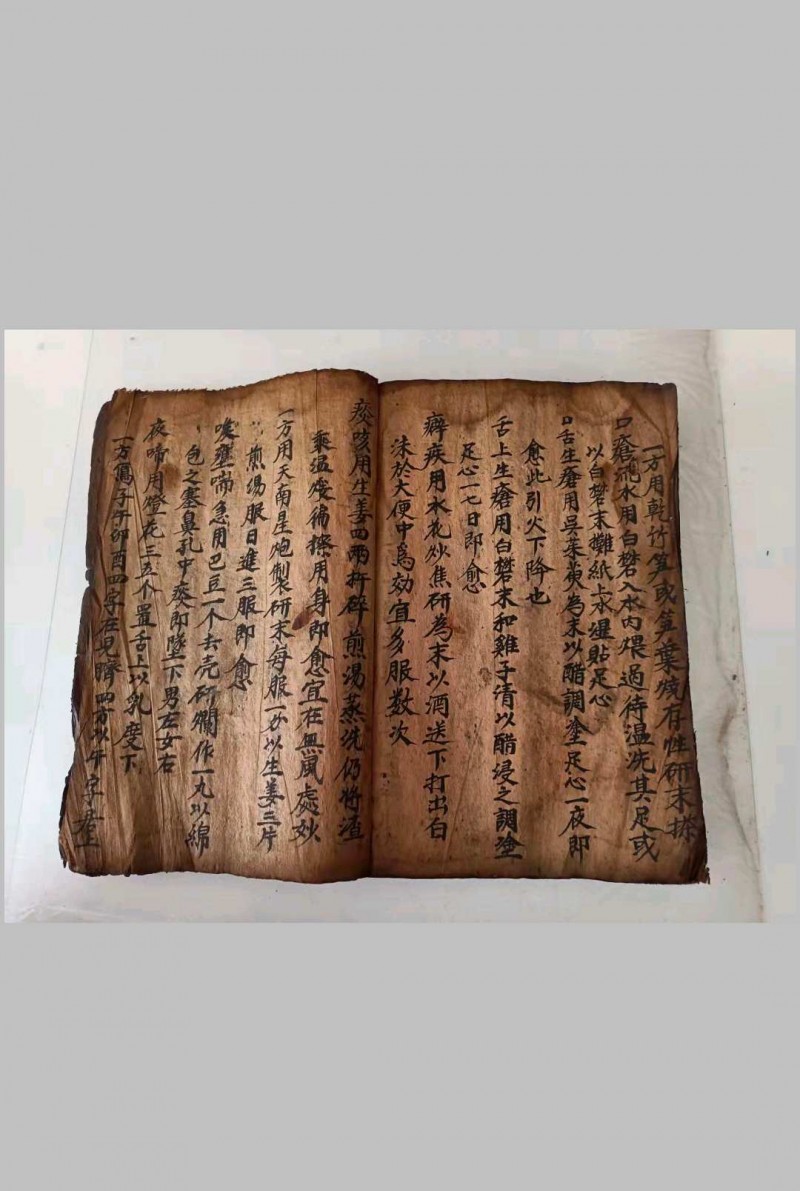 一方用乾竹笋或笋葉燒存性研末搽
口瘡流水用白礬入水內煨過待温洗其足或
以白礬末攤紙上水濕貼足心
口舌生瘡用吳茱萸為末以醋調塗足心一夜即
愈此引火下降也
舌上生瘡用白礬末和雞子清以醋浸之調塗
足心一七日即愈
癖疾用水花炒焦研為末以酒送下打出白
沫於大便中為効宜多服数次
痰咳用生姜四兩折碎煎湯蒸洗仍将渣
乘温煖徧擦用身即愈宜在無風處妙
一方用天南星炮製研末每服一分以生姜三片
煎湯服日進三服即愈
喉壅喘急用巴豆一个去壳研爛作一丸以綿
包之塞鼻孔中痰即墜下男左女右
夜啼用燈花三五个置舌上以乳度下
一方寫子午卯酉四字在兒臍四方以午字